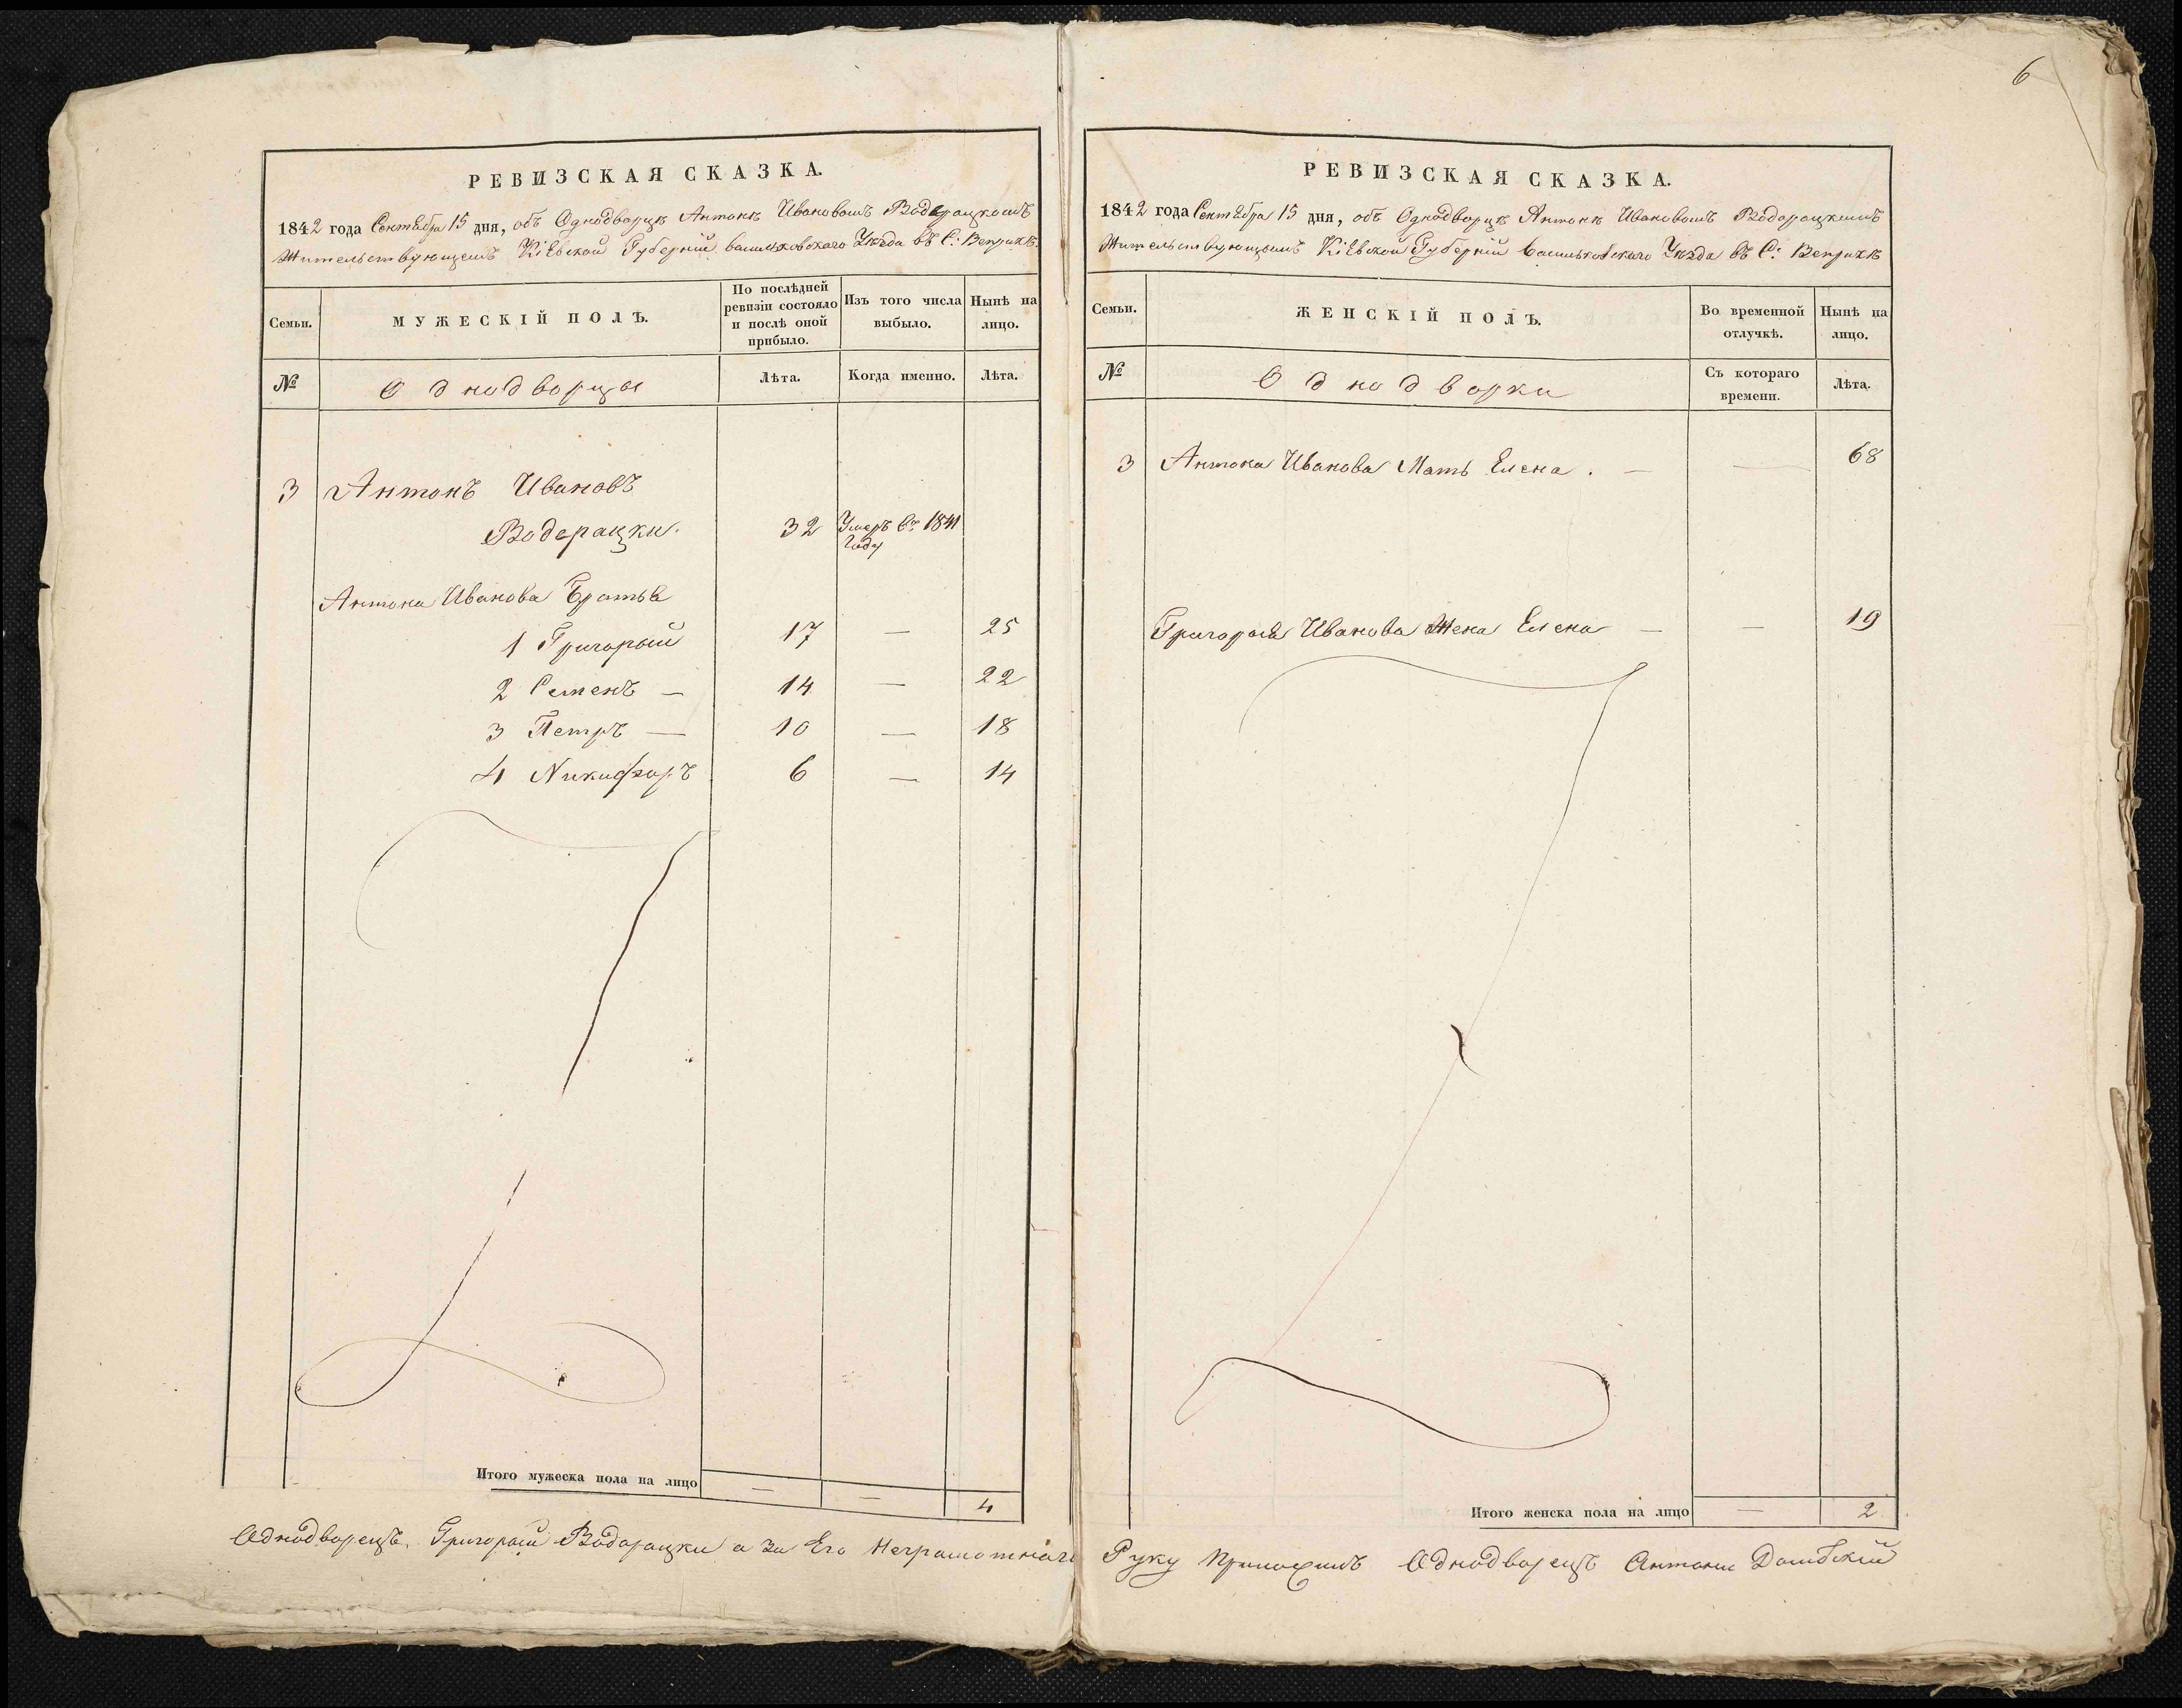 РЕВИЗСКАЯ СКАЗКА.
1842 года Сентебра 15 дня, объ Однодворцѣ Антонѣ Ивановомъ Водерацкомъ
Жительствующемъ Кіевской Губерніи василковскаго Уѣзда въ С: Веприкѣ.
Семьи.
МУЖЕСКІЙ ПОЛЪ.
По послѣдней
ревизіи состояло
и послѣ оной
прибыло.
Изъ того числа
выбыло.
Нынѣ на
лицо.
№
Однодворцы
Лѣта.
Когда именно.
Лѣта.
3 Антонъ Ивановъ
Водерацки. 32 Умеръ въ 1841
Году
Антона Иванова Братья
1 Григорый 17 — 25
2 Семенъ — 14 — 22
3 Петръ — 10 — 18
4 Никифоръ 6 — 14
Итого мужеска пола на лицо — — 4
Однодворецъ. Григорый Водарацки а За Его Неграмотнаго
6
РЕВИЗСКАЯ СКАЗКА.
1842 года Сентебра 15 дня, объ Однодворцѣ Антонѣ Ивановомъ Водарацкимъ
Жительствующемъ Кіевской Губерніи василковскаго Уѣзда въ С: Веприкѣ
Семьи.
ЖЕНСКІЙ ПОЛЪ.
Во временной
отлучкѣ.
Нынѣ на
лицо.
№
Однодворки
Съ котораго
времени.
Лѣта.
3 Антона Иванова Мать Елена . — — 68
Григорыя Иванова Жена Елена — — 19
Итого женска пола на лицо — 2
Руку Приложилъ Однодворецъ Антони Домбскій